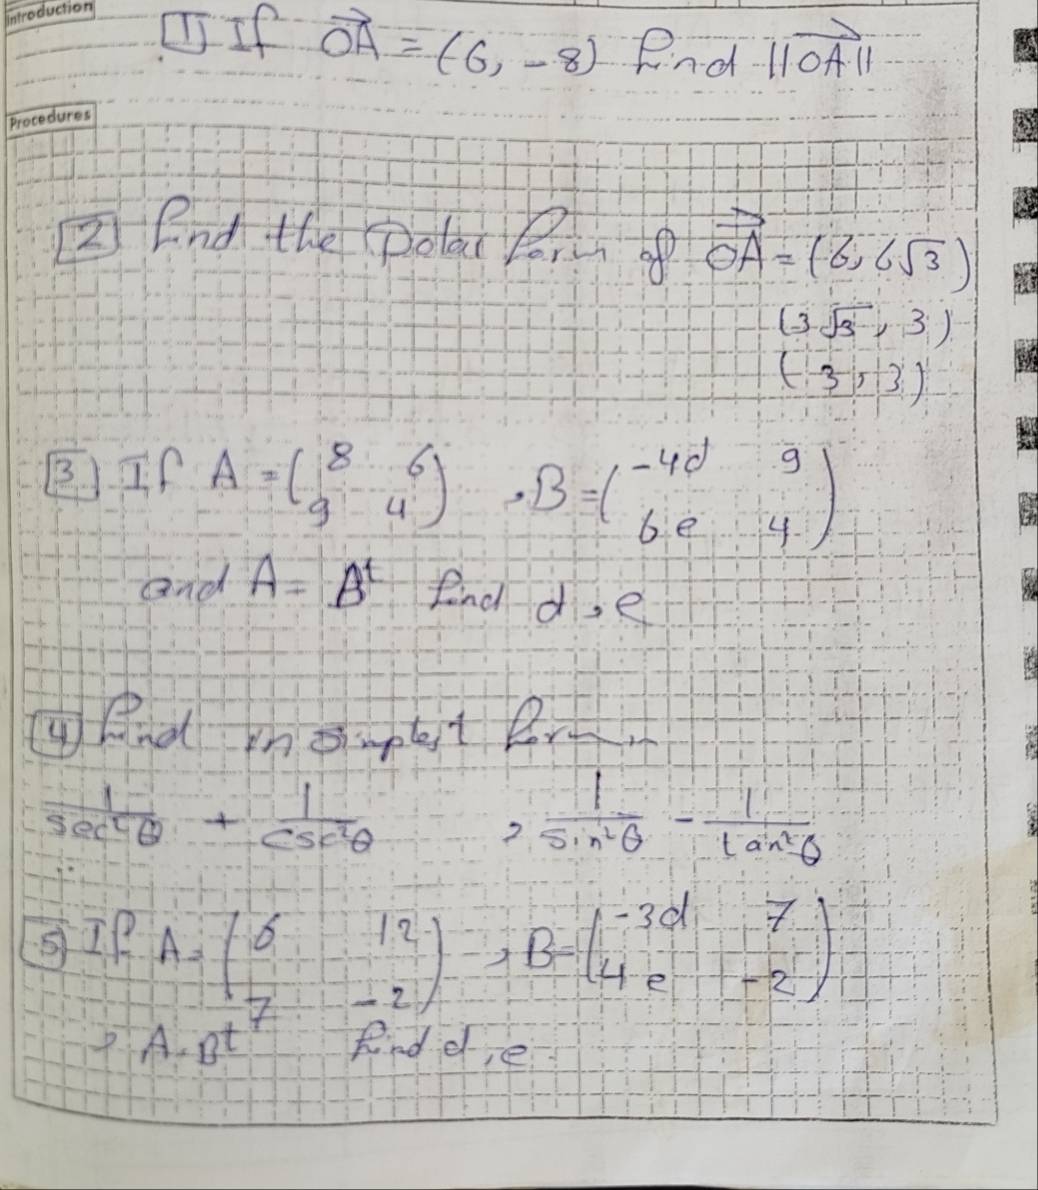 Introduction
[1] If OA = (6, -8) find ||OA||
Procedures
[2] find the polar form of OA = (6, 6√3)
(3√3, 3)
(-3, 3)
[3] If A = (8 6
9 4) , B = (-4d 9
6e 4)
and A = Bᵗ find d, e
[4] find in simplest form
1/sec²θ + 1/csc²θ , 1/sin²θ - 1/tan²θ
[5] If A = (6 12
7 -2) , B = (-3d 7
4e -2)
, A = Bᵗ find d, e